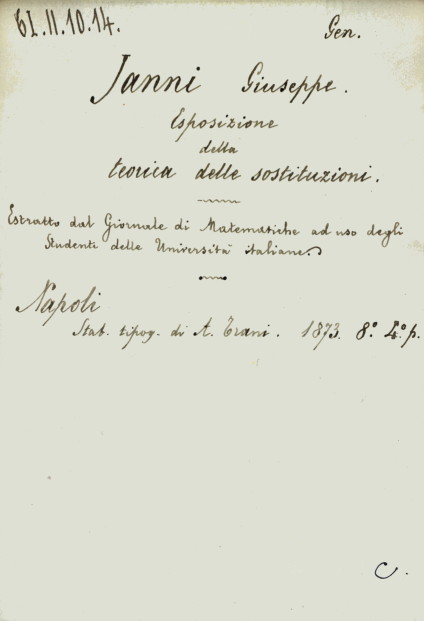 61.II.10.14.
Gen.
Janni Giuseppe.
Esposizione
della
teorica delle sostituzioni.
Estratto dal Giornale di Matematiche ad uso degli
Studenti delle Università italiane.
Napoli
Stab. tipog. di A. Trani. 1873. 8.° 4.° p.
C.